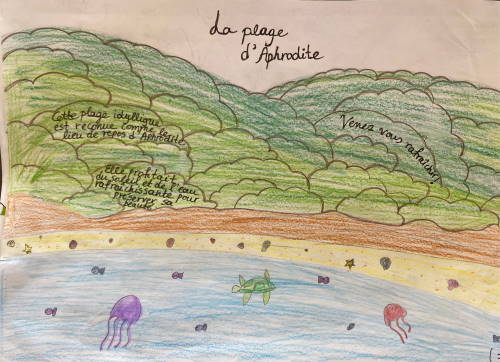 La plage
d'Aphrodite
Cette plage idyllique
est reconue comme le
lieu de repos d'Aphrodite
Venez vous rafraichir
elle profitait
du soleil et de l'eau
rafraichissante pour
préserver sa
beauté